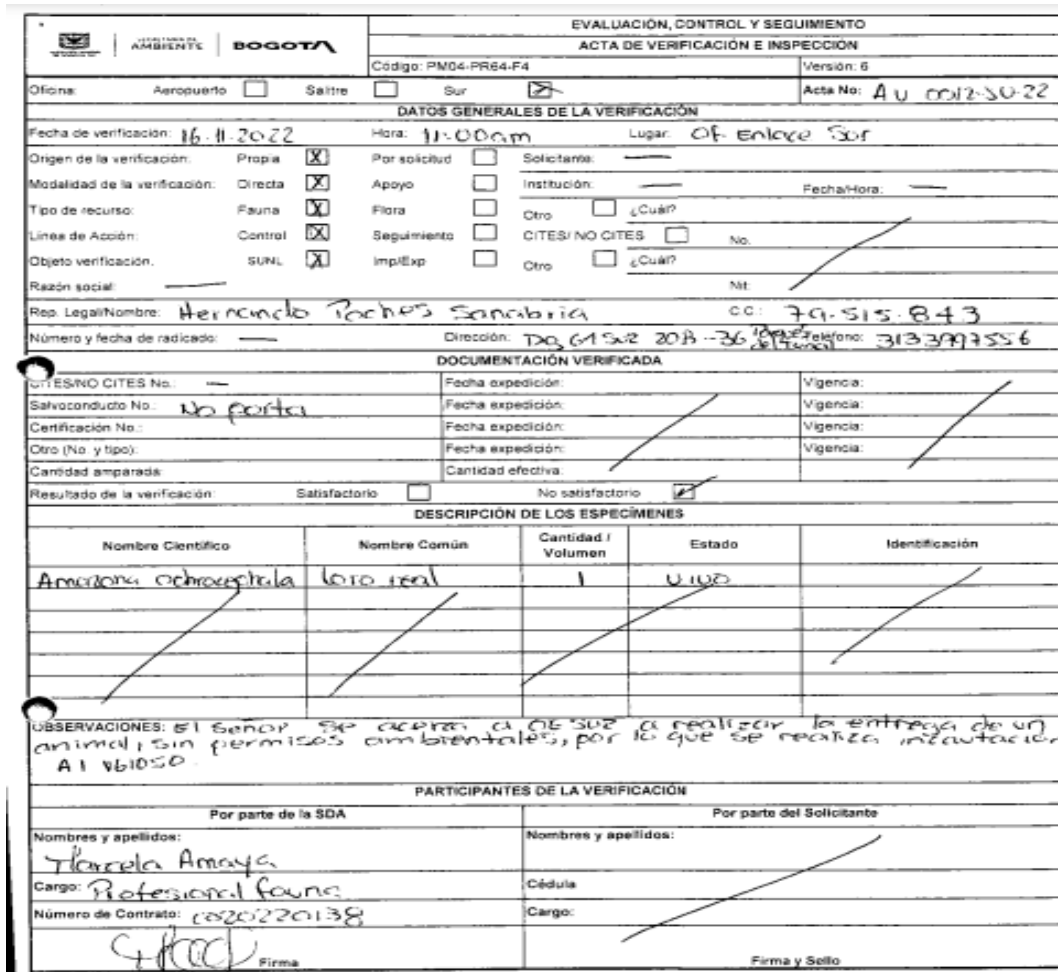 EVALUACIÓN, CONTROL Y SEGUIMIENTO
SECRETARÍA DE AMBIENTE BOGOTÁ
ACTA DE VERIFICACIÓN E INSPECCIÓN
Código: PM04-PR64-F4 Versión: 6
Oficina: Aeropuerto Salitre Sur Acta No: AU 0012-SU-22
DATOS GENERALES DE LA VERIFICACIÓN
Fecha de verificación: 16-11-2022 Hora: 11:00am Lugar: Of. Enlace Sur
Origen de la verificación: Propia X Por solicitud Solicitante: —
Modalidad de la verificación: Directa X Apoyo Institución: — Fecha/Hora: —
Tipo de recurso: Fauna X Flora Otro ¿Cuál?
Linea de Acción: Control X Seguimiento CITES/ NO CITES No.
Objeto verificación: SUNL X Imp/Exp Otro ¿Cuál?
Razón social: — Nit:
Rep. Legal/Nombre: Hernando Sanabria CC: 79.515.843
Número y fecha de radicado: — Dirección: 61 Sur 20B-36 Teléfono: 3133997556
DOCUMENTACIÓN VERIFICADA
CITES/NO CITES No.: — Fecha expedición: Vigencia:
Salvoconducto No.: No porta Fecha expedición: Vigencia:
Certificación No.: Fecha expedición: Vigencia:
Otro (No. y tipo): Fecha expedición: Vigencia:
Cantidad amparada: Cantidad efectiva:
Resultado de la verificación: Satisfactorio No satisfactorio
DESCRIPCIÓN DE LOS ESPECÍMENES
Nombre Científico Nombre Común Cantidad / Volumen Estado Identificación
Amazona ochrocephala loro real 1 vivo
OBSERVACIONES: El señor se acerca a OE SUR a realizar la entrega de un
animal, sin permisos ambientales, por lo que se realiza incautación
AI
PARTICIPANTES DE LA VERIFICACIÓN
Por parte de la SDA Por parte del Solicitante
Nombres y apellidos: Nombres y apellidos:
Marcela Amaya
Cargo: Profesional fauna Cédula
Número de Contrato: 20220138 Cargo:
Firma Firma y Sello